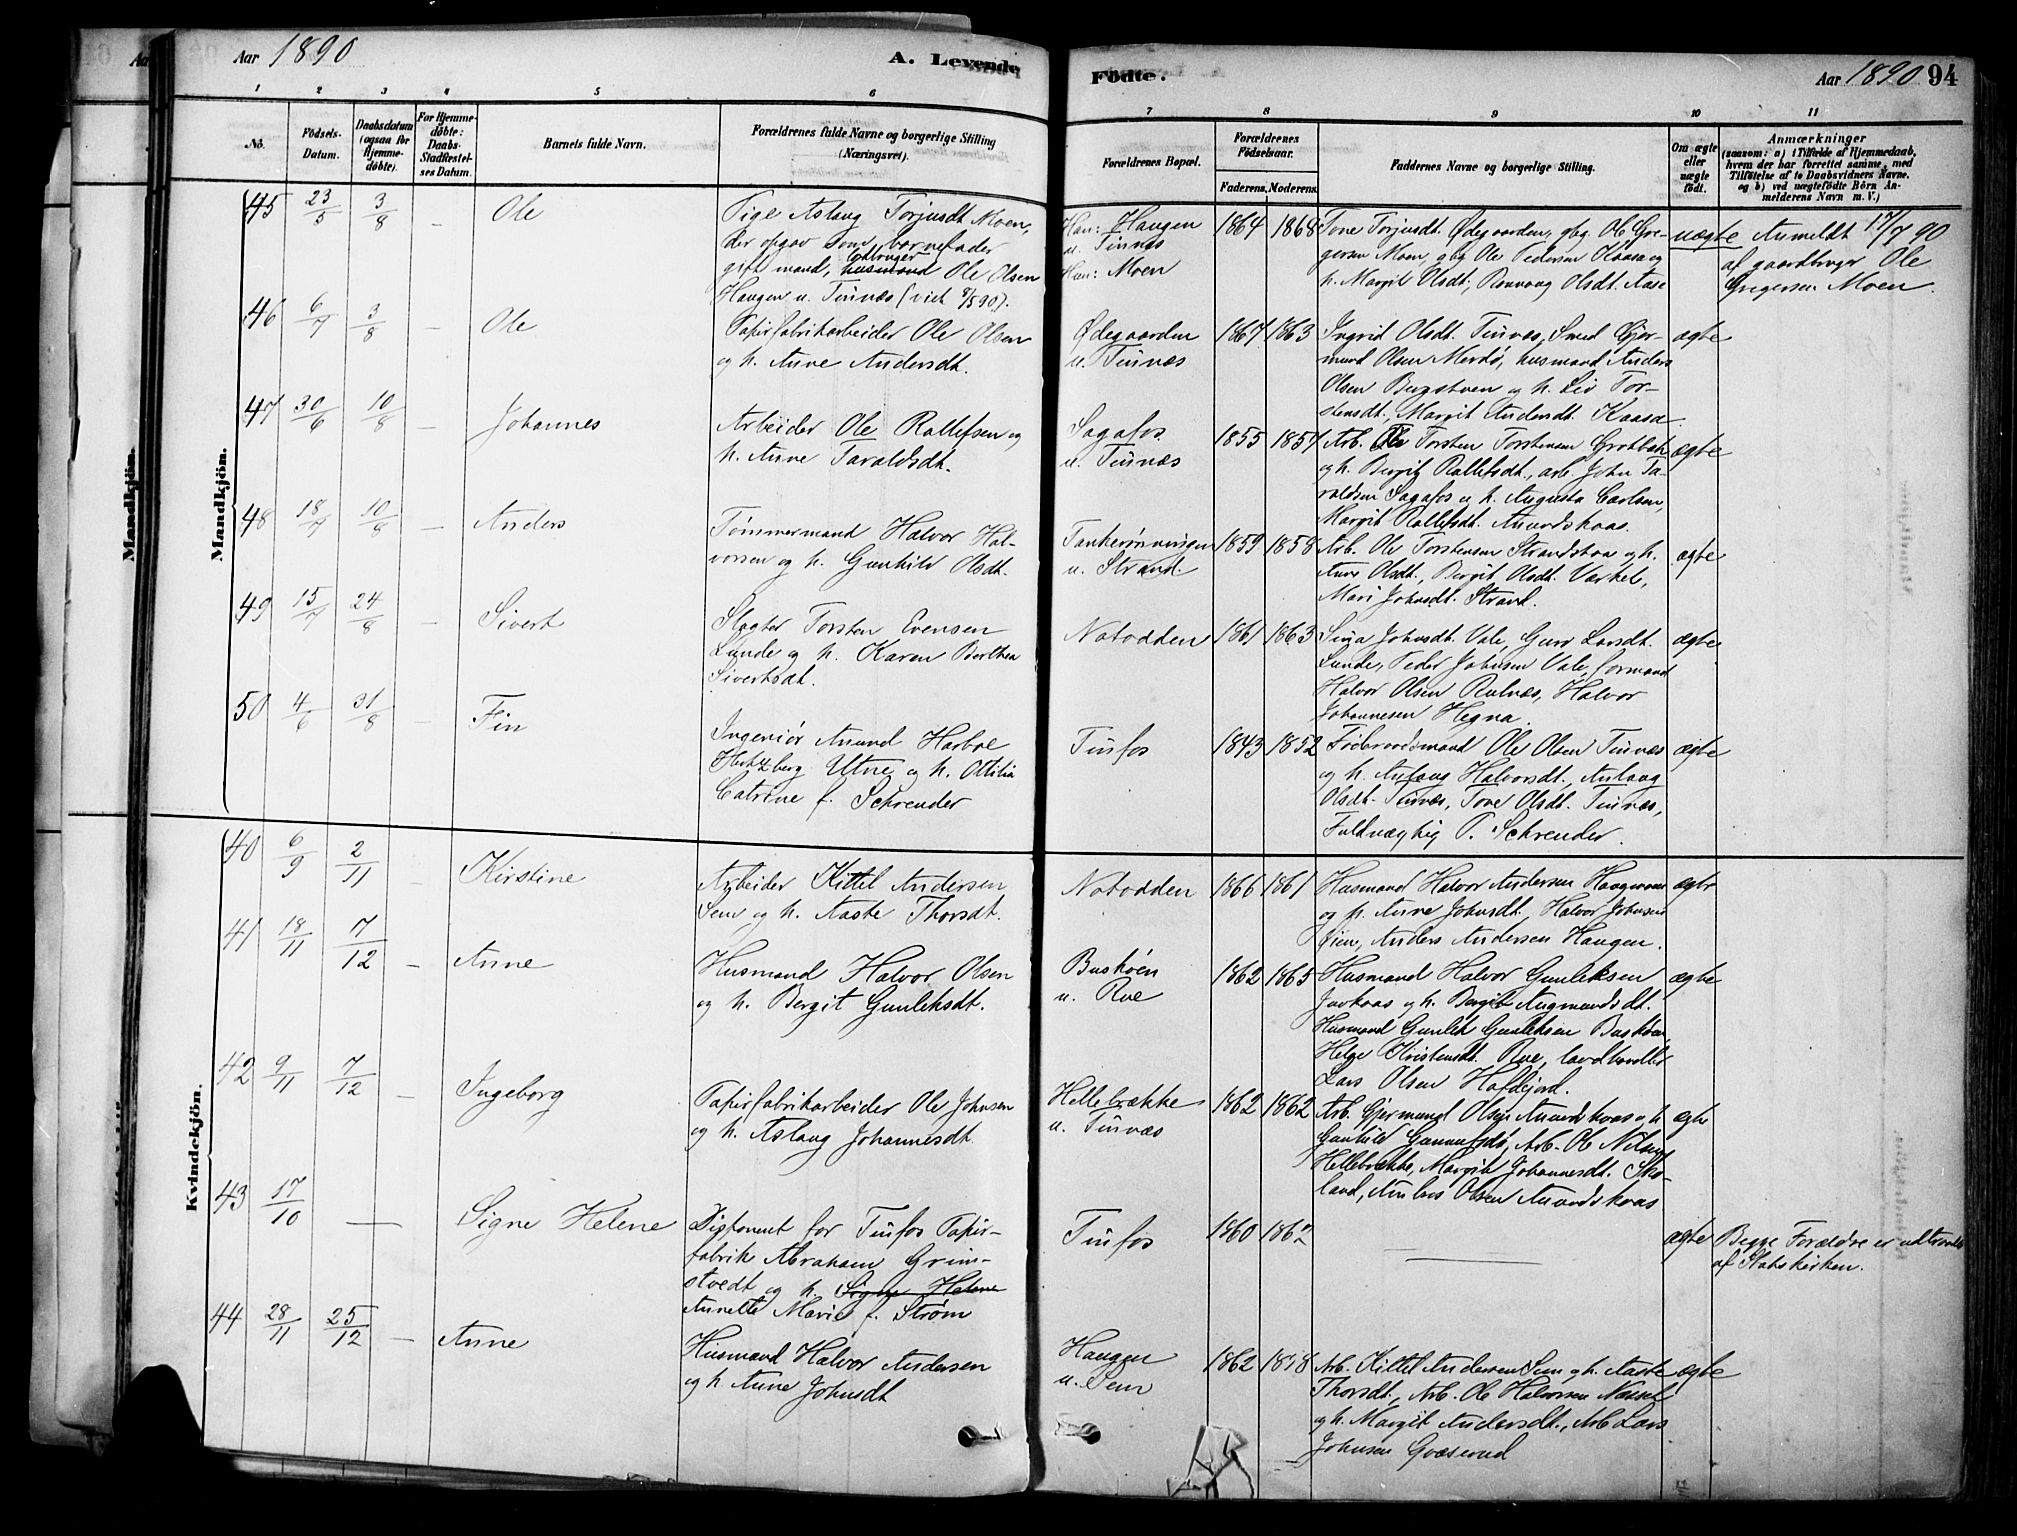 Aar 1890
A. Levende
Födte.
Aar 1890 94
1 2 3 4 5 6 7 8 9 10 11
No.
Födsels-
Datum.
Daabsdatum
(ogsaa for
Hjemme-
döbte).
For Hjemme-
döbte:
Daabs-
Stadfæstel-
ses Datum.
Barnets fulde Navn.
Forældrenes fulde Navne og borgerlige Stilling
(Næringsvei).
Forældrenes Bopæl.
Forældrenes
Födselsaar.
Faderens. Moderens.
Faddernes Navne og borgerlige Stilling.
Om ægte
eller
uægte
født.
Anmærkninger
(saasom: a) i Tilfælde af Hjemmedaab,
hvem der har forrettet samme, med
Tilföielse af to Daabsvidners Navne,
og b) ved uægtefödte Börn An-
melderens Navn m. V.)
Mandkjön.
45 23/5 3/8 - Ole
Pige Aslaug Torjusdt Moen,
der opgav som barnefader
gift mand, husmand Ole Olsen
Haugen u. Tinnæs (viet 8/5 90).
Han: Haugen
u. Tinnæs
Hun: Moen
1864 1868
Tone Torjusdt. Ødegaarden, gbg. Ole Gre-
gersen Moen, gbg Ole Pedersen Kaasa og
h. Margit Olsdt., Ranvaag Olsdt. Aase
uægte
Anmeldt 17/7 90
af gaardbruger Ole
Gregersen Moen.
46 6/7 3/8 - Ole
Papirfabrikarbeider Ole Olsen
og h. Anne Andersdt.
Ødegaarden
u. Tinnæs
1867 1863
Ingrid Olsdt. Tinnæs, Smed Gjer-
mund Olsen Merdø, husmand Anders
Olsen Bugstuen og h. Liv Tor-
stensdt., Margit Andersdt. Kaasa
ægte
47 30/6 10/8 - Johannes
Arbeider Ole Rollefsen og
h. Anne Taraldsdt.
Sagafos
u. Tinnæs
1855 1857
Arb. Torsten Torstensen Grotbæk
og h. Bergit Rollefsdt., arb. John Ta-
raldsen Sagafos og h. Augusta Carlsen,
Margit Rollefsdt. Anundskaas.
ægte
48 18/7 10/8 - Anders
Tømmermand Halvor Hal-
vorsen og h. Gunhild Olsdt.
u. Strand.
1859 1858
Arb. Ole Torstensen Strandstaa og h.
Anne Olsdt., Bergit Olsdt.
Mari Johnsdt. Strand.
ægte
49 15/7 24/8 - Sivert
Slagter Torsten Evensen
Lunde og h. Karen Berthea
Sivertsdt.
Notodden
1861 1863
Johnsdt. Vale, Guro Larsdt.
Lunde, Peder Johnsen Vale, formand
Halvor Olsen Rulnæs, Halvor
Johannesen Hegna.
ægte
50 4/6 31/8 - Fin
Ingeniör Anund Harboe
Hertzberg Utne og h. Ottilia
Catrine f. Schrender
Tinfos
1843 1852
Föderaadsmand Ole Olsen Tinnæs
og h. Aslaug Halvorsdt., Aslaug
Olsdt. Tinnæs, Tone Olsdt. Tinnæs,
Fuldmægtig P. Schrender.
ægte
Kvindekjön.
40 6/9 2/11 - Kirstine
Arbeider Kittel Andersen
Sem og h. Aaste Thorsdt.
Notodden
1866 1861
Husmand Halvor Andersen
og h. Anne Johnsdt., Halvor Johnsen
Øien, Anders Andersen Haugen.
ægte
41 18/11 7/12 - Anne
Husmand Halvor Olsen
og h. Bergit Gunleksdt.
Buskøen
u. Rue
1862 1865
Husmand Halvor Gunleksen
og h. Bergit Augmundsdt.
Husmand Gunlek Gunleksen Buskøen,
Helge Kristensdt. Rue, landhandler
Lars Olsen Hafdejord.
ægte
42 9/11 7/12 - Ingeborg
Papirfabrikarbeider Ole Johnsen
og h. Aslaug Johannesdt.
Hellebrække
u. Tinnæs
1862 1862
Arb. Gjermund Olsen Anundskaas og h.
Gunhild Gunnufsdt, Arb. Ole Nilsen
Hellebrække, Margit Johannesdt. Sko-
land, Olsen Anundskaas
ægte
43 17/10 — Signe Helene
Disponent for Tinfos Papir-
fabrik Abraham Grim-
stvedt og h. Signe Helene
Annette Marie f. Strøm
Tinfos
1860 1862
ægte
Begge Forældre er udtraadt
af Statskirken.
44 28/11 25/12 - Anne
Husmand Halvor Andersen
og h. Anne Johnsdt
Haugen
u. Sem
1862 1858
Arb. Kittel Andersen Sem og h. Aaste
Thorsdt., Arb. Ole Halvorsen
og h. Margit Andersdt., Arb. Lars
Johnsen Gvæserud
ægte